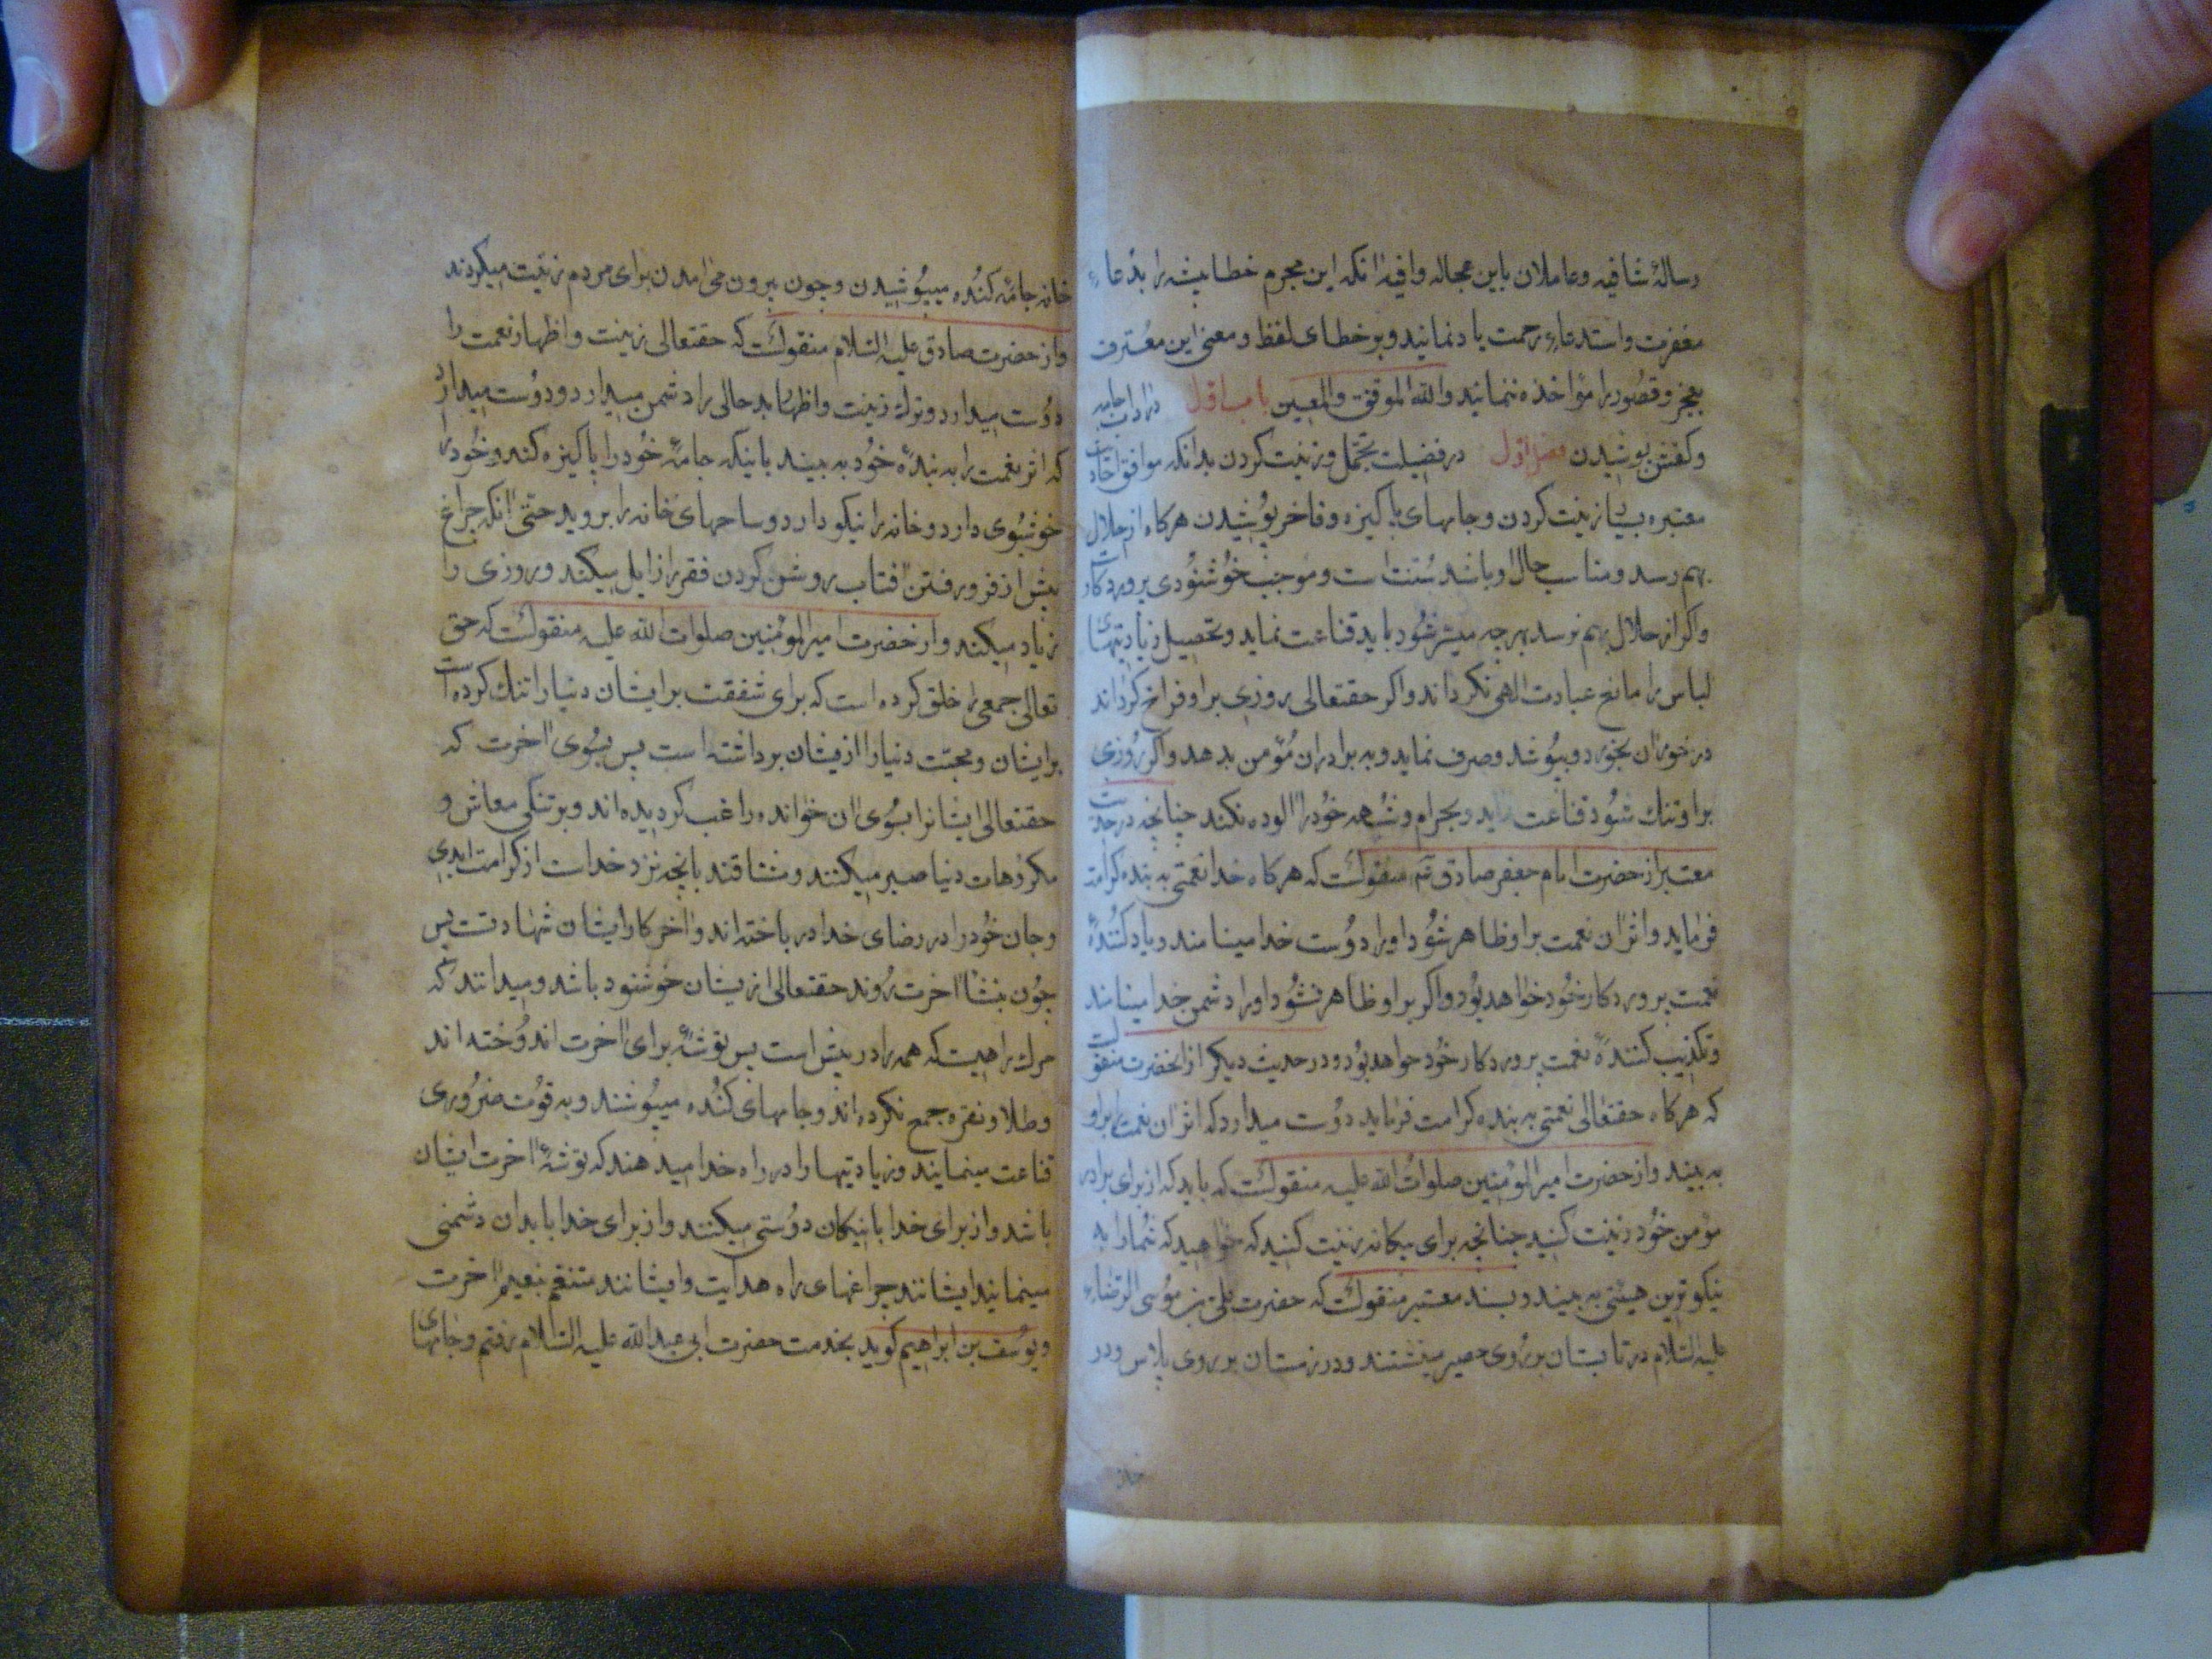 رسالهٔ شافیه و عاملان باین عجاله وافیه آنکه این مجرم خطا پیشه را بدعاء
مغفرت و استدعاء رحمت یاد نمایند و بر خطای لفظ و معنی این معترف
بعجز و قصور را مؤاخذه ننمایند والله الموفق والمعین باب اول در آداب جامه
و کفش پوشیدن فصل اول در فضیلت تجمل و زینت کردن بدانکه موافق احادیث
معتبره بسیار زینت کردن و جامهای پاکیزه و فاخر پوشیدن هرکاه از حلال
بهم رسد و مناسب حال او باشد سنت است و موجب خوشنودی پروردکار
واکر از حلال بهم نرسد بهرچه میسر شود باید قناعت نماید و تحصیل زیادتیهای
لباس را مانع عبادت الهی نکرداند واکر حقتعالی روزی بر او فراخ کرداند
در خور آن بخورد و بپوشد و صرف نماید و به برادران مؤمن بدهد واکر روزی
بر او تنک شود قناعت نماید و بحرام و شبهه خود را آلوده نکند چنانچه در حدیث
معتبر از حضرت امام جعفر صادق ع‍م منقولست که هرکاه خدا نعمتی به بنده کرامت
فرماید و اثر آن نعمت بر او ظاهر شود او را دوست خدا مینامند و یاد کنندهٔ
نعمت پروردکار خود خواهد بود واکر بر او ظاهر نشود او را دشمن خدا مینامند
و تکذیب کنندهٔ نعمت پروردکار خود خواهد بود و در حدیث دیکر از آنحضرت منقولست
که هرکاه حقتعالی نعمتی به بنده کرامت فرماید دوست میدارد که اثر آن نعمت را بر او
به بیند و از حضرت امیرالمؤمنین صلوات الله علیه منقولست که باید که از برای برادر
مؤمن خود زینت کنید چنانچه برای بیکانه زینت کنید که خواهید که شما را به
نیکوترین هیئتی به بیند و بسند معتبر منقولست که حضرت علی بن موسی الرضاء
علیه السلام در تابستان بر روی حصیر مینشستند و در زمستان بر روی پلاس و در
خانه
خانه جامهٔ کنده میپوشیدن و چون بیرون می‌آمدن برای مردم زینت میکردند
و از حضرت صادق علیه السلام منقولست که حقتعالی زینت و اظهار نعمت را
دوست میدارد و ترک زینت و اظهار بد حالی را دشمن میدارد و دوست میدارد
که اثر نعمت را به بندهٔ خود به بیند باینکه جامهٔ خود را پاکیزه کند و خود را
خوشبوی دارد و خانه را نیکو دارد و ساحهای خانه را بروید حتی آنکه چراغ
پیش از فرو رفتن آفتاب روشن کردن فقر را زایل میکند و روزی را
زیاد میکند و از حضرت امیرالمؤمنین صلوات الله علیه منقولست که حق
تعالی جمعی را خلق کرده است که برای شفقت بر ایشان دنیا را تنک کرده است
بر ایشان و محبت دنیا را از یشان برداشته است پس بسوی آخرت که
حقتعالی ایشانرا بسوی آن خوانده راغب کردیده‌اند و بر تنکی معاش و
مکروهات دنیا صبر میکنند و مشتاقند بانچه نزد خداست از کرامت ابدی
و جان خود را در رضای خدا در باخته‌اند و آخر کار ایشان شهادتست پس
چون بنشأ آخرت روند حقتعالی از یشان خوشنود باشد و میدانند که
مرک راهیست که همه را در پیش است پس توشهٔ برای آخرت اندوخته‌اند
و طلا و نقره جمع نکرده‌اند و جامهای کنده میپوشند و به قوت ضروری
قناعت مینمایند و زیادتیها را در راه خدا میدهند که توشهٔ آخرت ایشان
باشد و از برای خدا با نیکان دوستی میکنند و از برای خدا با بدان دشمنی
مینمایند ایشانند چراغهای راه هدایت و ایشانند متنعم بنعیم آخرت
و یوسف بن ابراهیم کوید بخدمت حضرت ابی عبدالله علیه السلام رفتم و جامهای